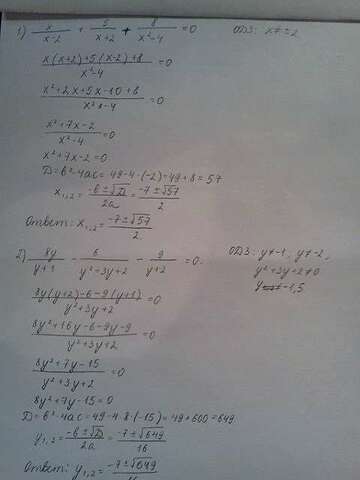 1) x/(x-2) + 5/(x+2) + 8/(x²-4) = 0 ОДЗ: x≠±2
(x(x+2)+5(x-2)+8)/(x²-4) = 0
(x²+2x+5x-10+8)/(x²-4) = 0
(x²+7x-2)/(x²-4) = 0
x²+7x-2=0
D=b²-4ac=49-4·(-2)=49+8=57
x₁,₂ = (-b±√D)/2a = (-7±√57)/2
Ответ: x₁,₂ = (-7±√57)/2
2) 8y/(y+1) - 6/(y²+3y+2) - 9/(y+2) = 0 ОДЗ: y≠-1, y≠-2,
y²+3y+2≠0
(8y(y+2)-6-9(y+1))/(y²+3y+2) = 0
(8y²+16y-6-9y-9)/(y²+3y+2) = 0
(8y²+7y-15)/(y²+3y+2) = 0
8y²+7y-15=0
D=b²-4ac=49-4·8·(-15)=49+600=649
y₁,₂ = (-b±√D)/2a = (-7±√649)/16
Ответ: y₁,₂ = (-7±√649)/